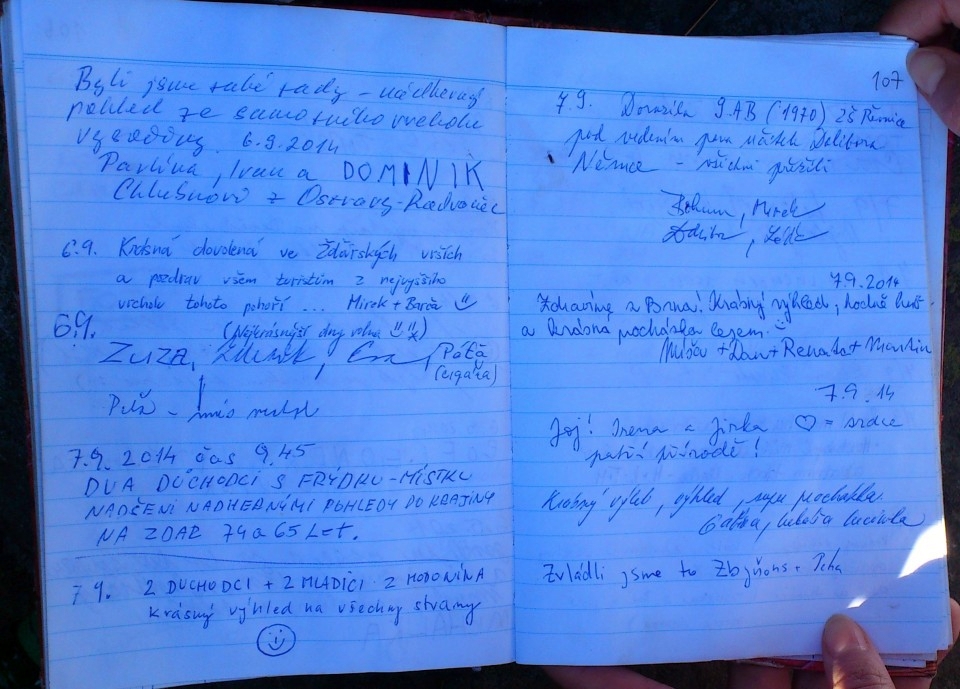 Byli jsme také tady - nádherný
pohled ze samotného vrcholu
vysočiny 6.9.2014
Pavlína, Ivan a DOMINIK
z Ostravy-Radvanic
6.9. Krásná dovolená ve Žďárských vrších
a pozdrav všem turistům z nejvyššího
vrcholu tohoto pohoří ... Mirek + Barča
6.9. (Nejkrásnější dny volna)
Zuza, Zdeněk, Eva,
7.9.2014 čas 9.45
DVA DŮCHODCI S FRÝDKU-MÍSTKU
NADŠENI NADHERNÝMI POHLEDY DO KRAJINY
NA ZDAR 74 a 65 LET.
7.9. 2 DUCHODCI + 2 MLADÍCI Z HODONÍNA
krásný výhled na všechny strany
107
7.9. Dorazila 9.AB (1970) ZŠ
pod vedením pana Dalibora
Němce - všichni přežili
Bohun, Mirek
7.9.2014
Zdravíme z Brna! Krásný výhled, hodně
a krásná procházka lesem.
Míša + Dan + Renata + Martin
7.9.14
Joj! Irena a Jirka ♡ = srdce
patří přírodě!
Krásný výlet, výhled, procházka
Zvládli jsme to